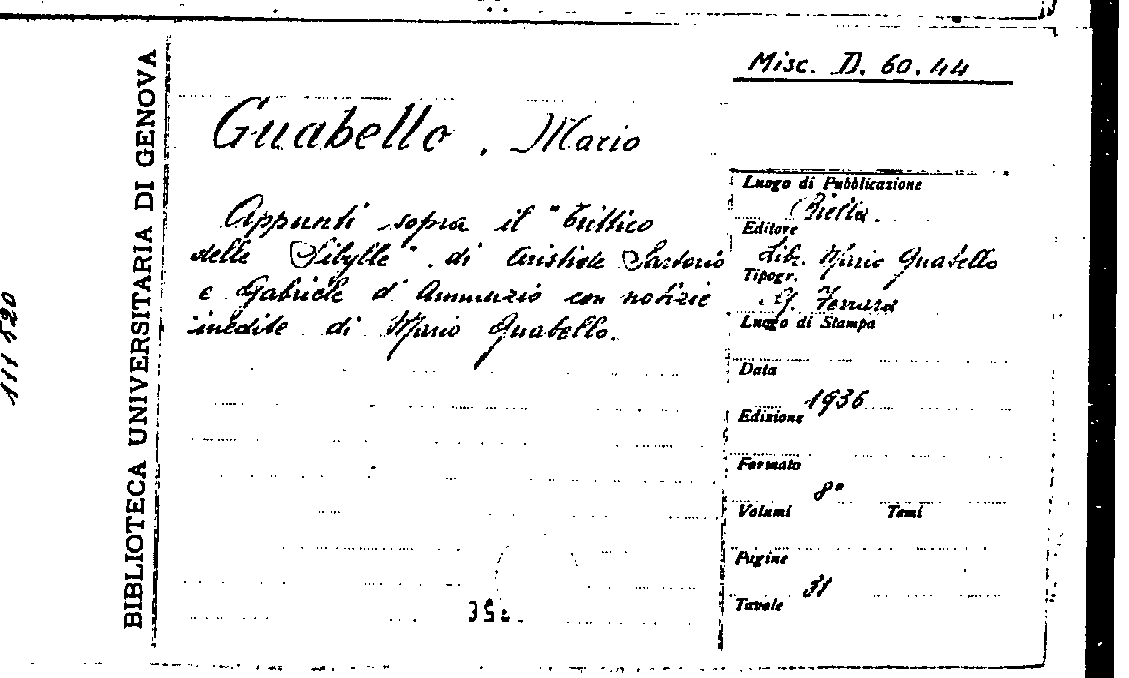 Misc. D. 60.44
Guabello, Mario
Appunti sopra il "Trittico
delle Sibylle" di Aristide Sartorio
e Gabriele d'Annunzio con notizie
inedite di Mario Guabello.
BIBLIOTECA UNIVERSITARIA DI GENOVA
Luogo di Pubblicazione
Biella.
Editore
Libr. Mario Guabello
Tipogr.
Ferrara
Luogo di Stampa
Data
1936
Edizione
Formato
8°
Volumi Tomi
Pagine
31
Tavole